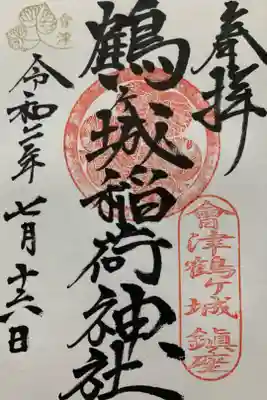 奉拝
會津鶴ヶ城 鎮座
鶴ヶ城稲荷神社
令和二年 七月 十六日
會津